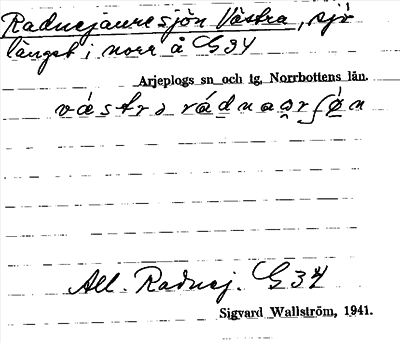 Radnejaure sjön Västra, sjö
längst i norr å G 34
Arjeplogs sn och tg, Norrbottens län.
vá̱strə rá̱dnao̯rʃǿ̱n
All. Radnej. G 34
Sigvard Wallström, 1941.